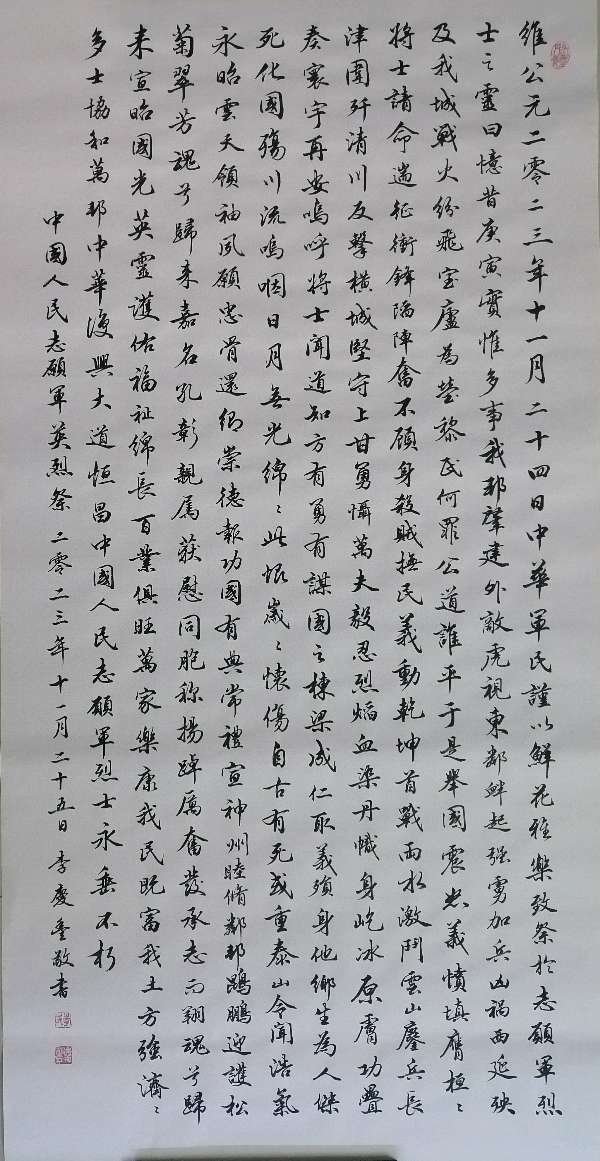 維公元二零二三年十一月二十四日中華軍民謹以鮮花雅樂致祭於志願軍烈
士之靈曰憶昔庚寅實惟多事我邦肇建外敵虎視東鄰衅起强虜加兵凶禍西延殃
及我城戰火紛飛室廬為塋黎民何罪公道誰平于是舉國震怒義憤填膺桓〻
將士請命遄征衝鋒陷陣奮不顧身殺賊撫民義動乾坤首戰兩水激鬥雲山鏖兵長
津圍歼清川反擊橫城堅守上甘勇懾萬夫毅忍烈焰血染丹幟身屹冰原膚功疊
奏寰宇再安嗚呼將士聞道知方有勇有謀國之棟梁成仁取義殞身他鄉生為人傑
死化國殤川流嗚咽日月無光綿〻此恨歲〻懷傷自古有死或重泰山令聞浩氣
永昭雲天領袖夙願忠骨還鄉崇德報功國有典常禮宣神州睦脩鄰邦鵾鵬迎護松
菊翠芳魂兮歸来嘉名孔彰親属获慰同胞称揚踔厲奮發承志而翔魂兮歸
来宣昭國光英靈護佑福祉綿長百業俱旺萬家樂康我民既富我土方强濟〻
多士協和萬邦中華復興大道恒昌中國人民志願軍烈士永垂不朽
中國人民志願軍英烈祭 二零二三年十一月二十五日 李慶 敬書